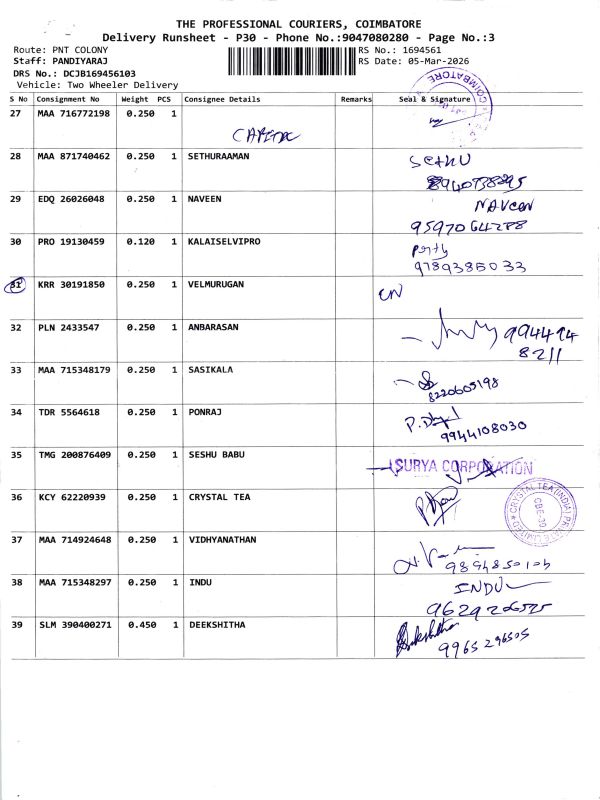 THE PROFESSIONAL COURIERS, COIMBATORE
Delivery Runsheet - P30 - Phone No.:9047080280 - Page No.:3
Route: PNT COLONY
RS No.: 1694561
Staff: PANDIYARAJ
RS Date: 05-Mar-2026
DRS No.: DCJB169456103
Vehicle: Two Wheeler Delivery
COIMBATORE
S No Consignment No Weight PCS Consignee Details Remarks Seal & Signature
27 MAA 716772198 0.250 1
28 MAA 871740462 0.250 1 SETHURAAMAN SETHU
29 EDQ 26026048 0.250 1 NAVEEN NAVEEN
9597064288
30 PRO 19130459 0.120 1 KALAISELVIPRO
9789385033
31 KRR 30191850 0.250 1 VELMURUGAN
32 PLN 2433547 0.250 1 ANBARASAN 994494
8211
33 MAA 715348179 0.250 1 SASIKALA
8220605198
34 TDR 5564618 0.250 1 PONRAJ
9944108030
35 TMG 200876409 0.250 1 SESHU BABU SURYA CORPORATION
36 KCY 62220939 0.250 1 CRYSTAL TEA CRYSTAL TEA (INDIA) PRIVATE LIMITED
37 MAA 714924648 0.250 1 VIDHYANATHAN
38 MAA 715348297 0.250 1 INDU INDU
39 SLM 390400271 0.450 1 DEEKSHITHA Deekshitha
9965296505